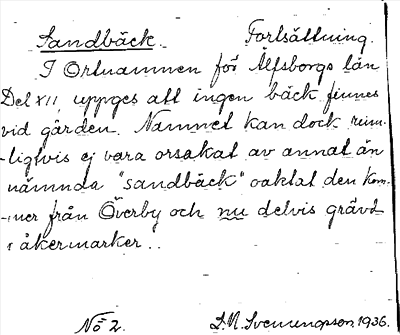 Sandbäck. Fortsättning.
I Ortnamnen för Älfsborgs län
Del XII, uppges att ingen bäck finnes
vid gården. Namnet kan dock rim-
-ligtvis ej vara orsakat av annat än
nämnda "sandbäck" oaktat den kom-
-mer från Överby och nu delvis grävd
i åkermarker..
No 2. S.N. Svenungsson, 1936.